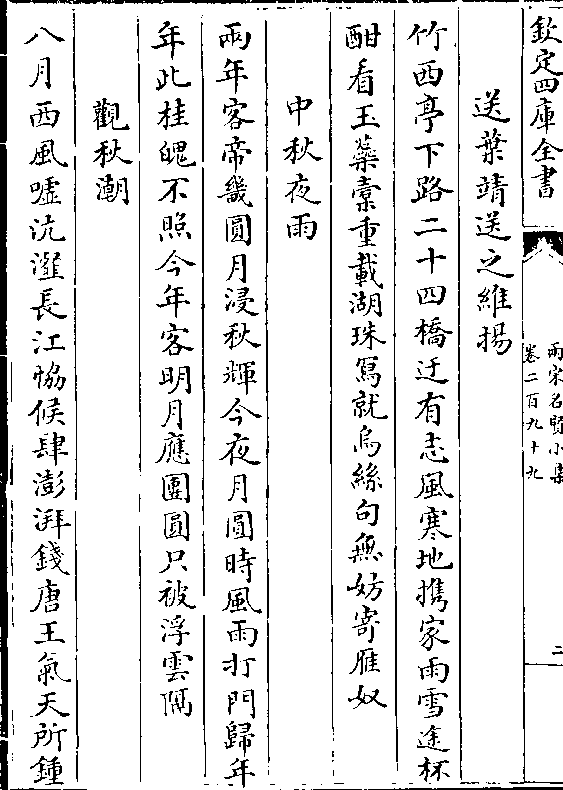 欽定四庫全書
兩宋名賢小集
卷二百九十九
二
送葉靖送之維揚
竹西亭下路二十四橋迂有志風寒地携家雨雪途杯
酣看玉蘂橐重載湖珠寫就烏絲句無妨寄雁奴
中秋夜雨
兩年客帝畿圓月浸秋輝今夜月圓時風雨打門歸年
年此桂魄不照今年客明月應團圓只被浮雲隔
觀秋潮
八月西風噓沆瀣長江恊候肆澎湃錢唐王氣天所鍾